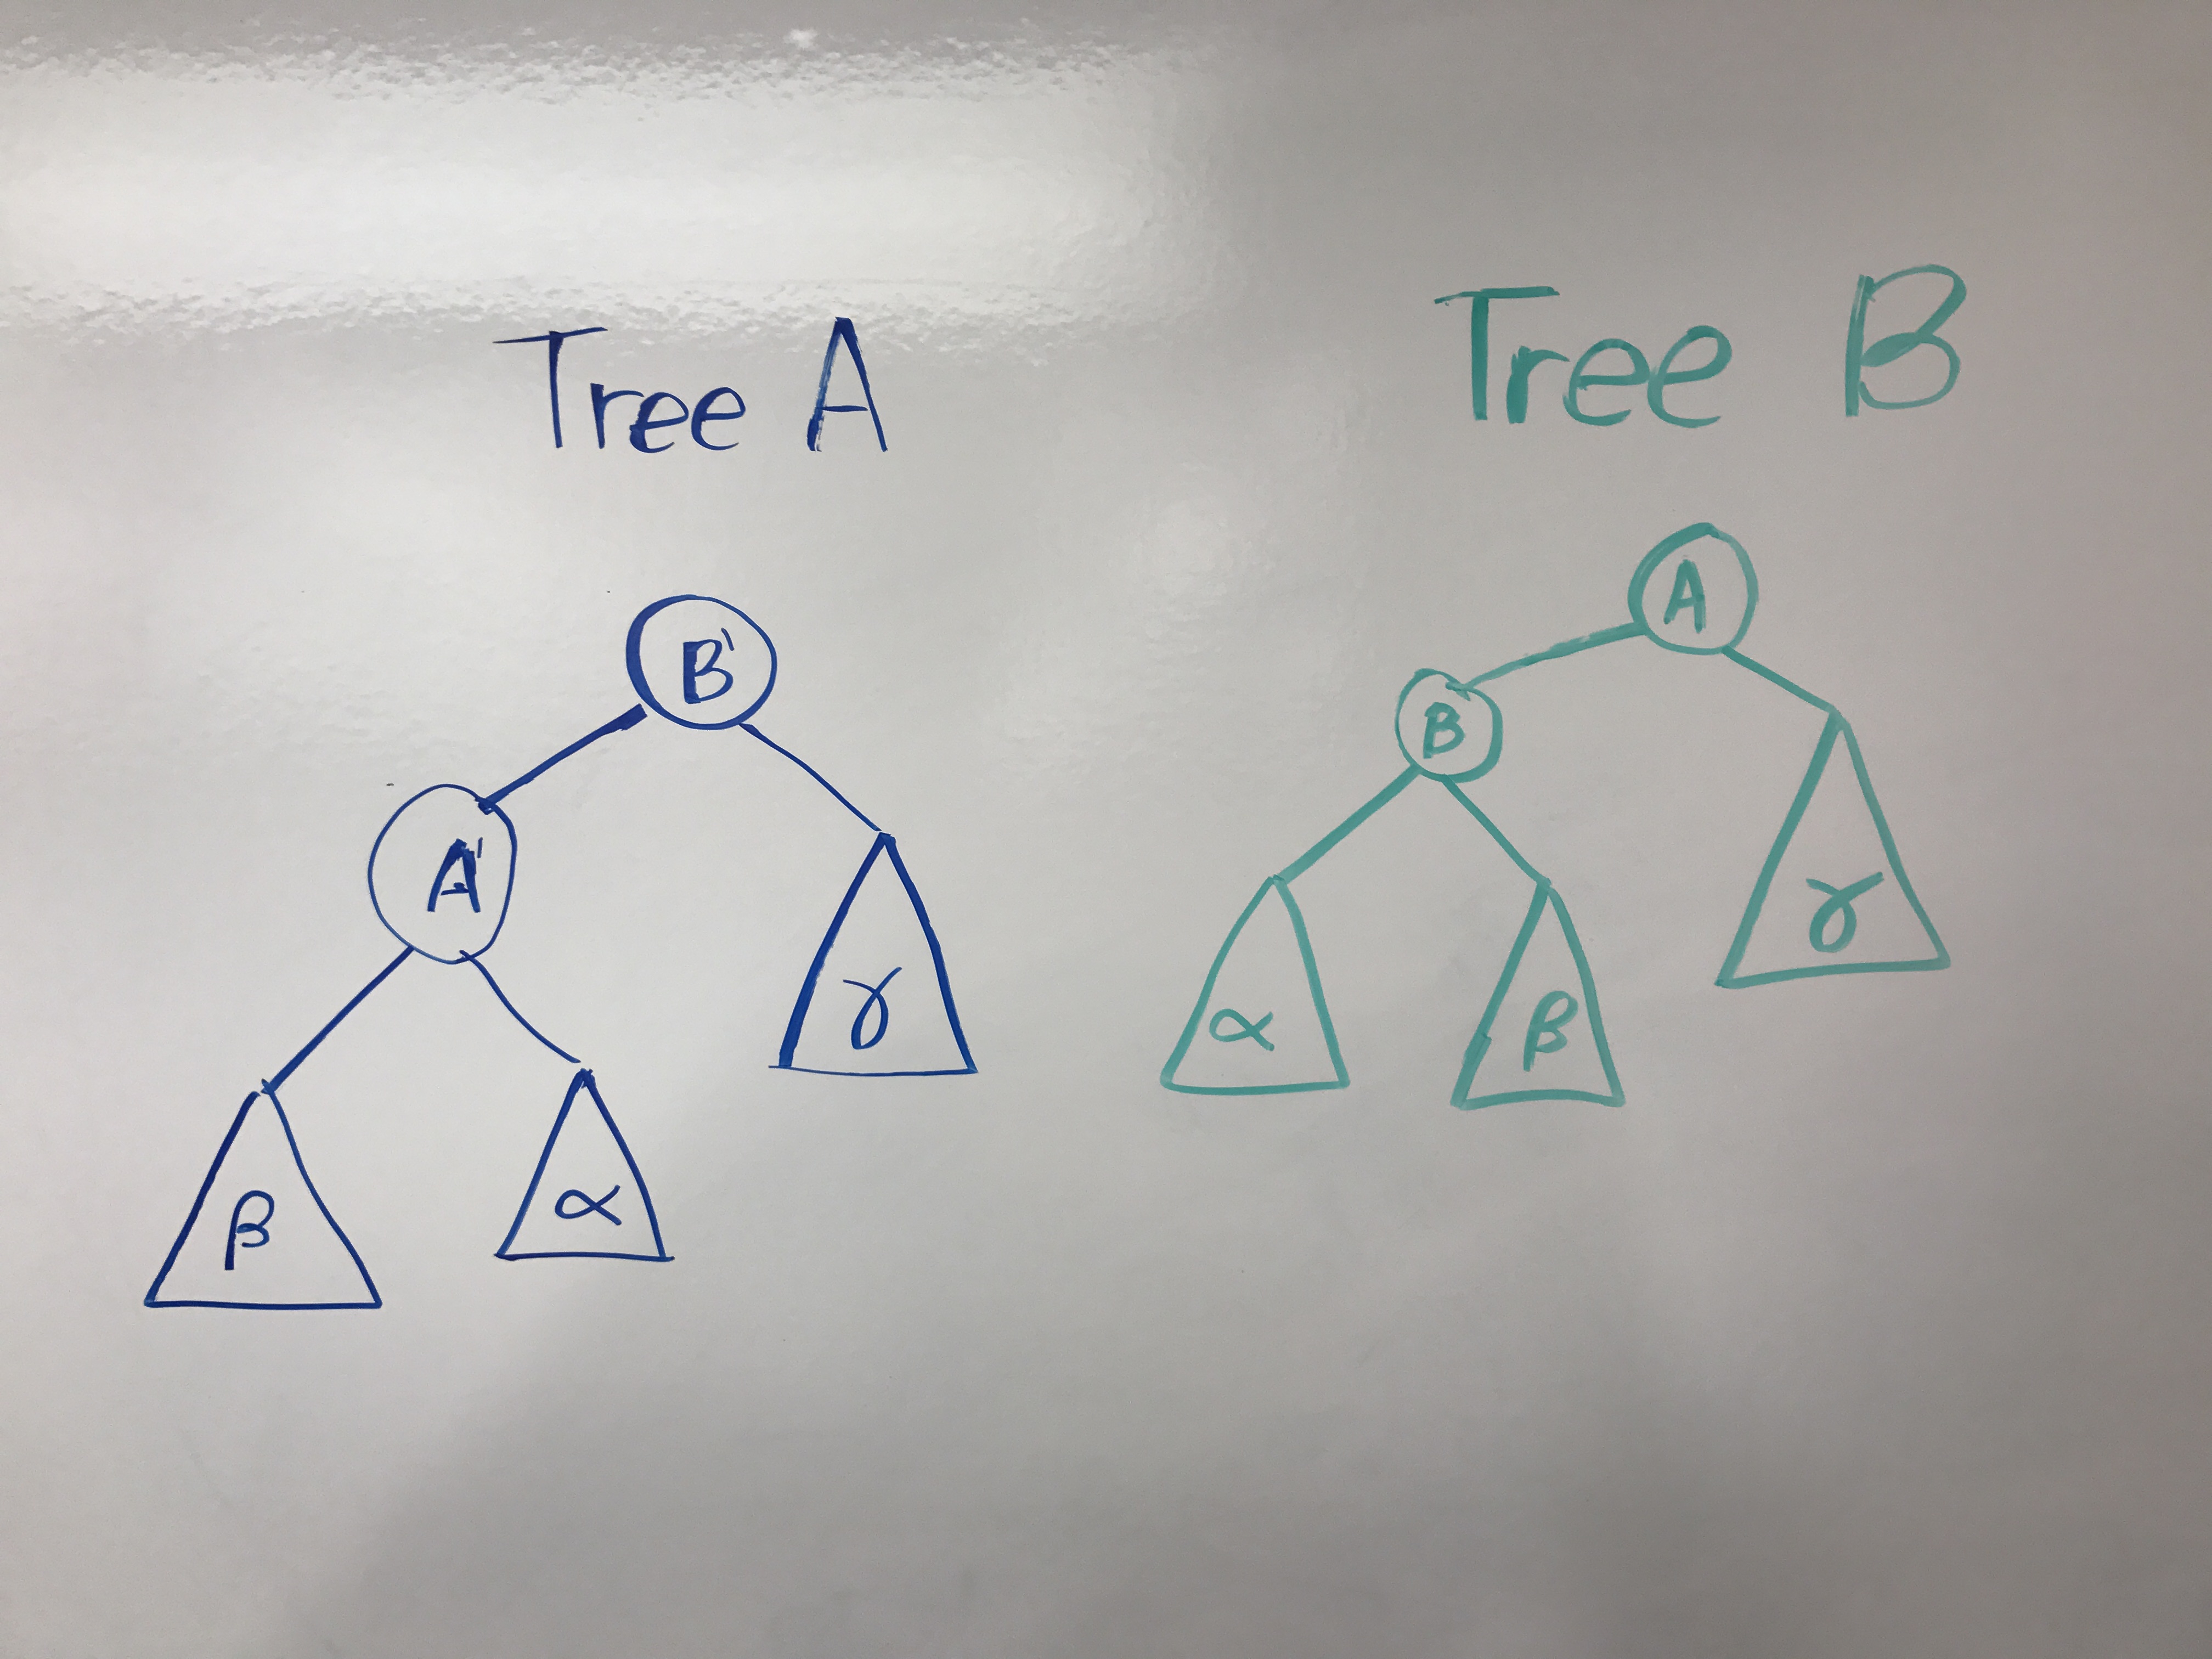 Tree A
B'
A'
γ
β
α
Tree B
A
B
γ
α
β